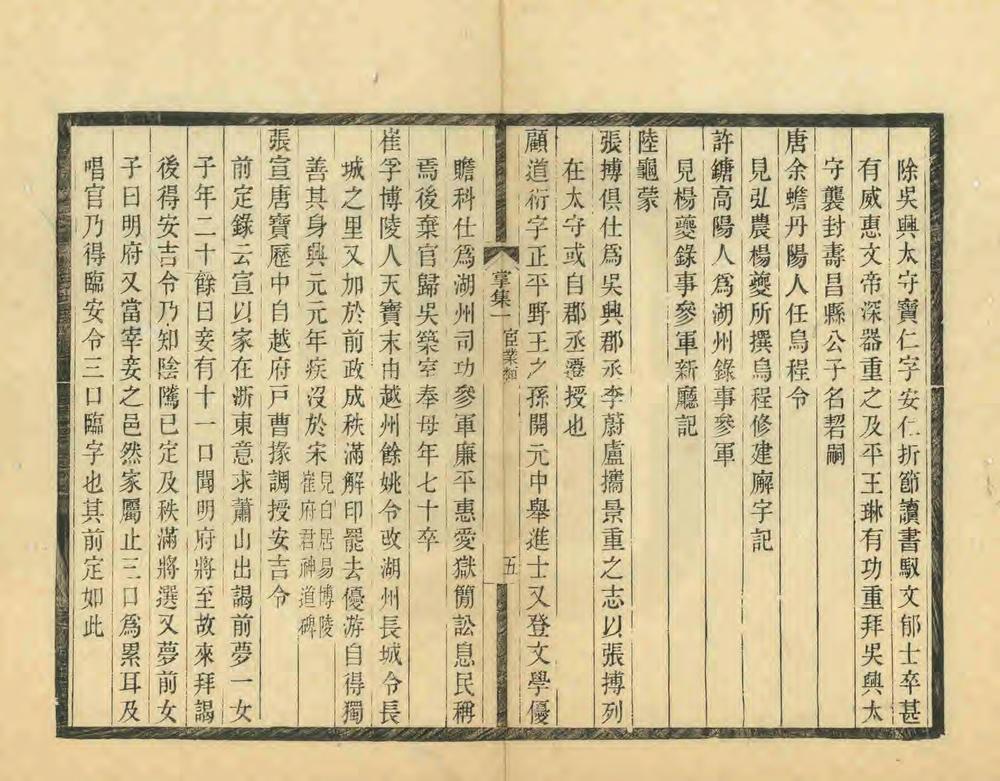 除吳興太守寶仁字安仁折節讀書馭文郁士卒甚
有威惠文帝深器重之及平王琳有功重拜吳興太
守襲封壽昌縣公子名䂮嗣
唐余蟾丹陽人任烏程令
見弘農楊夔所撰烏程修建廨宇記
許鏽高陽人爲湖州錄事參軍
見楊夔錄事參軍新廳記
陸龜蒙
張搏俱仕爲吳興郡丞李蔚盧攜景重之志以張搏列
在太守或自郡丞遷授也
顧道衍字正平野王之孫開元中舉進士又登文學優
掌集一 宦業類 五
贍科仕爲湖州司功參軍廉平惠愛獄簡訟息民稱
焉後棄官歸吳築室奉母年七十卒
崔孚博陵人天寶末由越州餘姚令改湖州長城令長
城之里又加於前政成秩滿解印罷去優游自得獨
善其身興元元年疾沒於宋見白居易博陵崔府君神道碑
張宣唐寶歷中自越府戸曹掾調授安吉令
前定錄云宣以家在浙東意求蕭山出謁前夢一女
子年二十餘曰妾有十一口聞明府將至故來拜謁
後得安吉令乃知陰隲已定及秩滿將選又夢前女
子曰明府又當宰妾之邑然家屬止三口爲累耳及
唱官乃得臨安令三口臨字也其前定如此